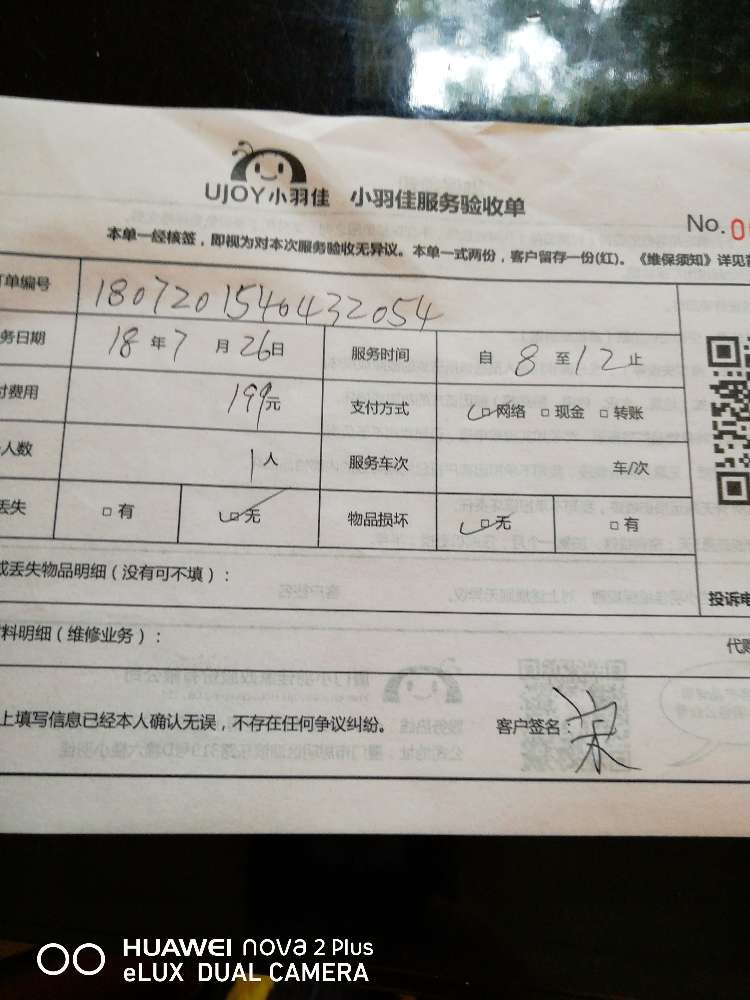 UJOY小羽佳 小羽佳服务验收单
No.0
本单一经核签，即视为对本次服务验收无异议。本单一式两份，客户留存一份(红)。《维保须知》详见
单编号 1807201546432054
务日期 18年7月26日 服务时间 自8至12止
付费用 199元 支付方式 □网络 □现金 □转账
人数 1人 服务车次 车/次
丢失 □有 □无 物品损坏 □无 □有
或丢失物品明细（没有可不填）：
投诉电
料明细（维修业务）：
代购
上填写信息已经本人确认无误，不存在任何争议纠纷。 客户签名：
HUAWEI nova 2 Plus
eLUX DUAL CAMERA